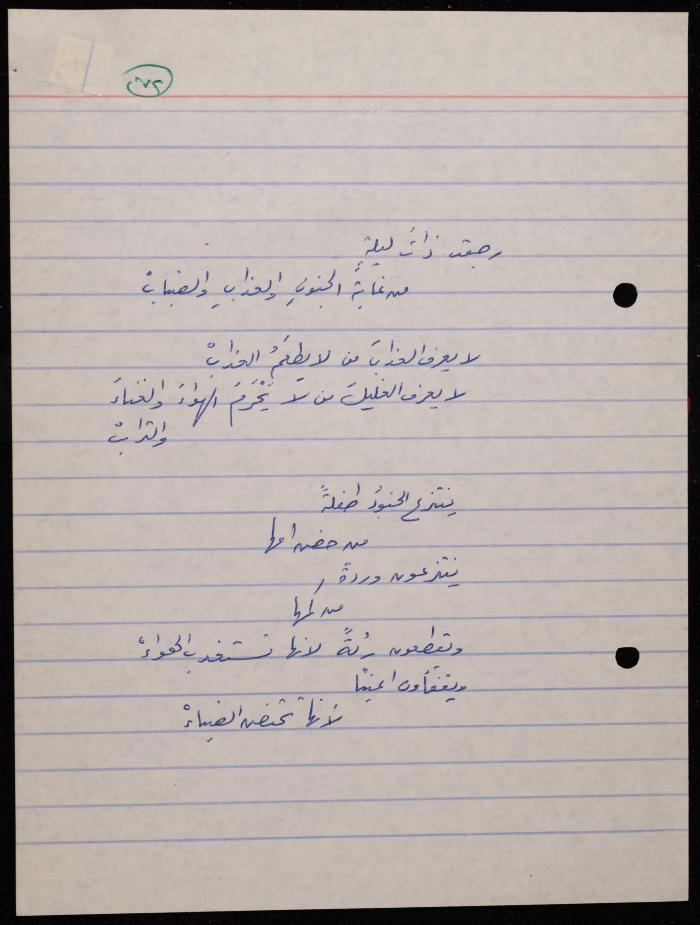 رجعت ذاتَ ليلةٍ
من غابةِ الجنونِ والعذابِ والضبابْ
لا يعرف العذابَ من لا يطعَمُ العذابْ
لا يعرف الغليلَ من لا يُحْرَمَ الهواءَ والغناءَ
والترابْ
ينتزع الجنودُ طفلةً
من حضن امها
ينتزعون وردةً
من كمها
ويقطعون رئةً لانها تستعذب الهواءْ
ويفقأون اعينًا
لانها تحتضن الضياءْ